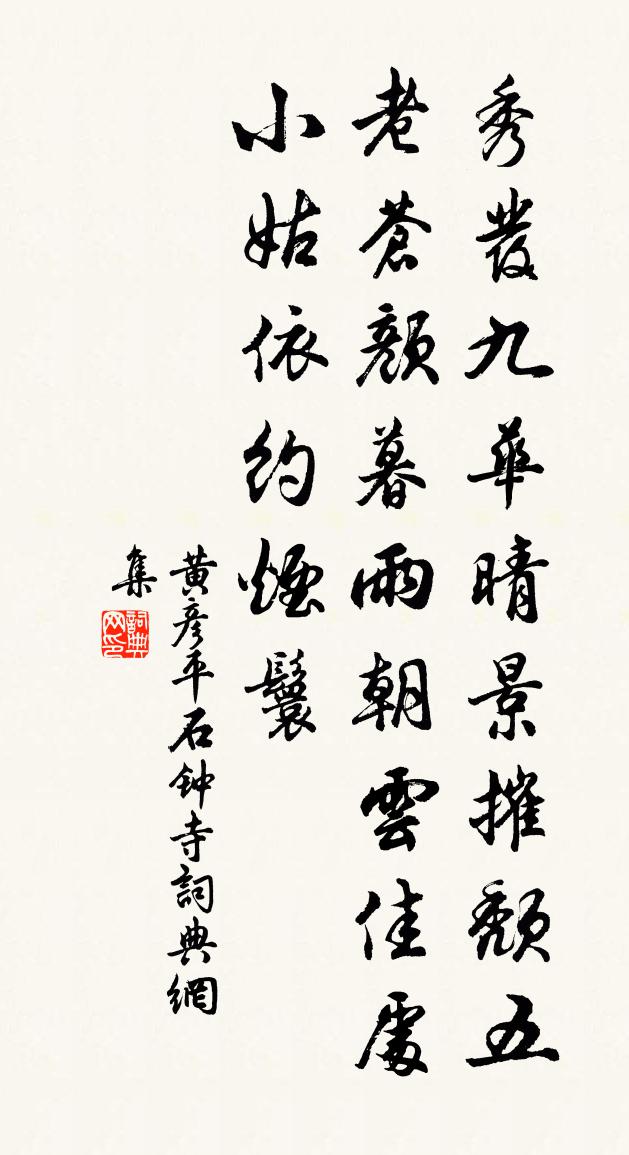 秀發九華晴景摧頹五
老蒼顏暮雨朝雲佳處
小姑依約煙鬟
黃彥平石钟寺詞典網
集
詞典网印